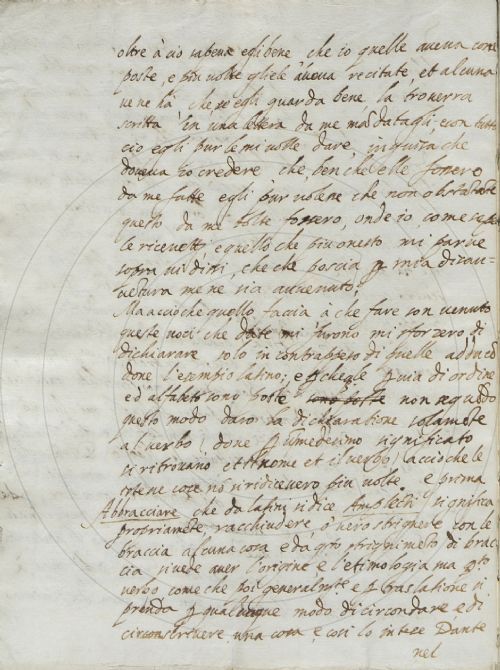 oltre à ciò sapeva egli bene, che io quelle aveva com
poste, e più volte gliele aveva recitate, et alcuna
ve ne hà, che se egli guarda bene, la troverrà
scritta in una lettera da me mandatagli; e con tutto
ciò egli pur le mi volle dare, in guisa che
doveva io credere che, benche elle fossero
da me fatte egli pur volene che non obstante
questo da me tolte fossero, onde io, come
le ricevetti, e quello che più onesto mi parve
sopra vi dissi, che che poscia p mia disav-
ventura me ne sia avvenuto.
Ma acciò che quello faccia à che fare son venuto
queste voci che date mi furono mi sforzerò di
dichiarare, solo in contrappeso di quelle adducē
done l'esempio latino; e p che
ed alfabeto sono poste sono poste non
questo modo darò la dichiaratione solamēte
al verbo, dove p il medesimo significato
si ritrovano et il nome et il verbo, acciò che le
cose nō si ridicessero più volte, e prima
Abbracciare che da latini si dice Amplecti significa
propriamēte, racchiudere, ò vero strignere con le
braccia alcuna cosa e dà qsto strignimēto di brac
cia si vede aver l'origine e l'etimologia ma qsto
verbo come che poi generalmte e p traslatione si
prenda p qualunque modo di circondare, e di
circonscrivere una cosa, e così lo intese Dante
nel